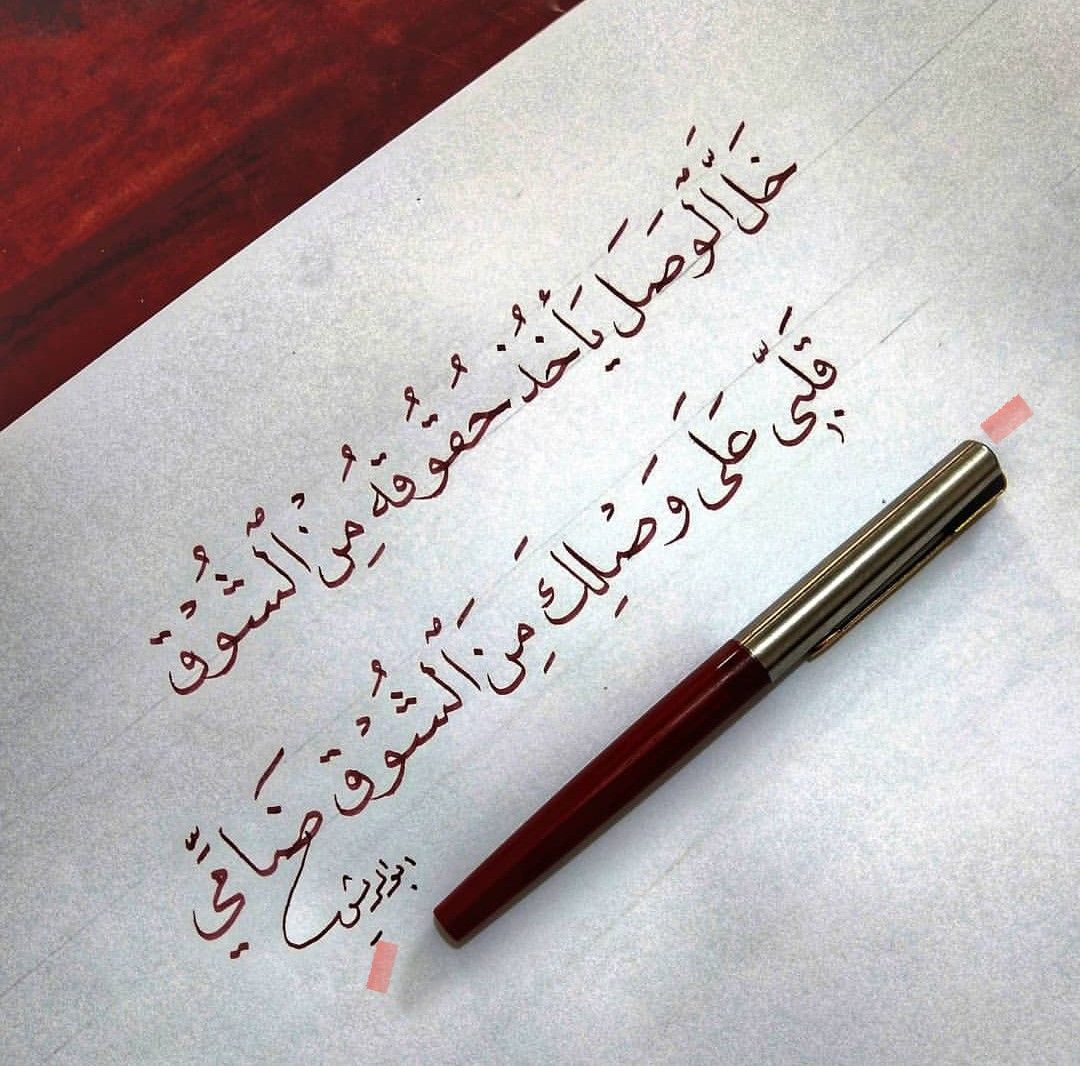 خَلَ الَّوَصَل يَأخُذ حُقُوقَهُ مِنْ الّشُوْق
قَلبِّى عَلَى وَصْلِك مِنَ الّشُوْق ضَامِّي
ابو الريش